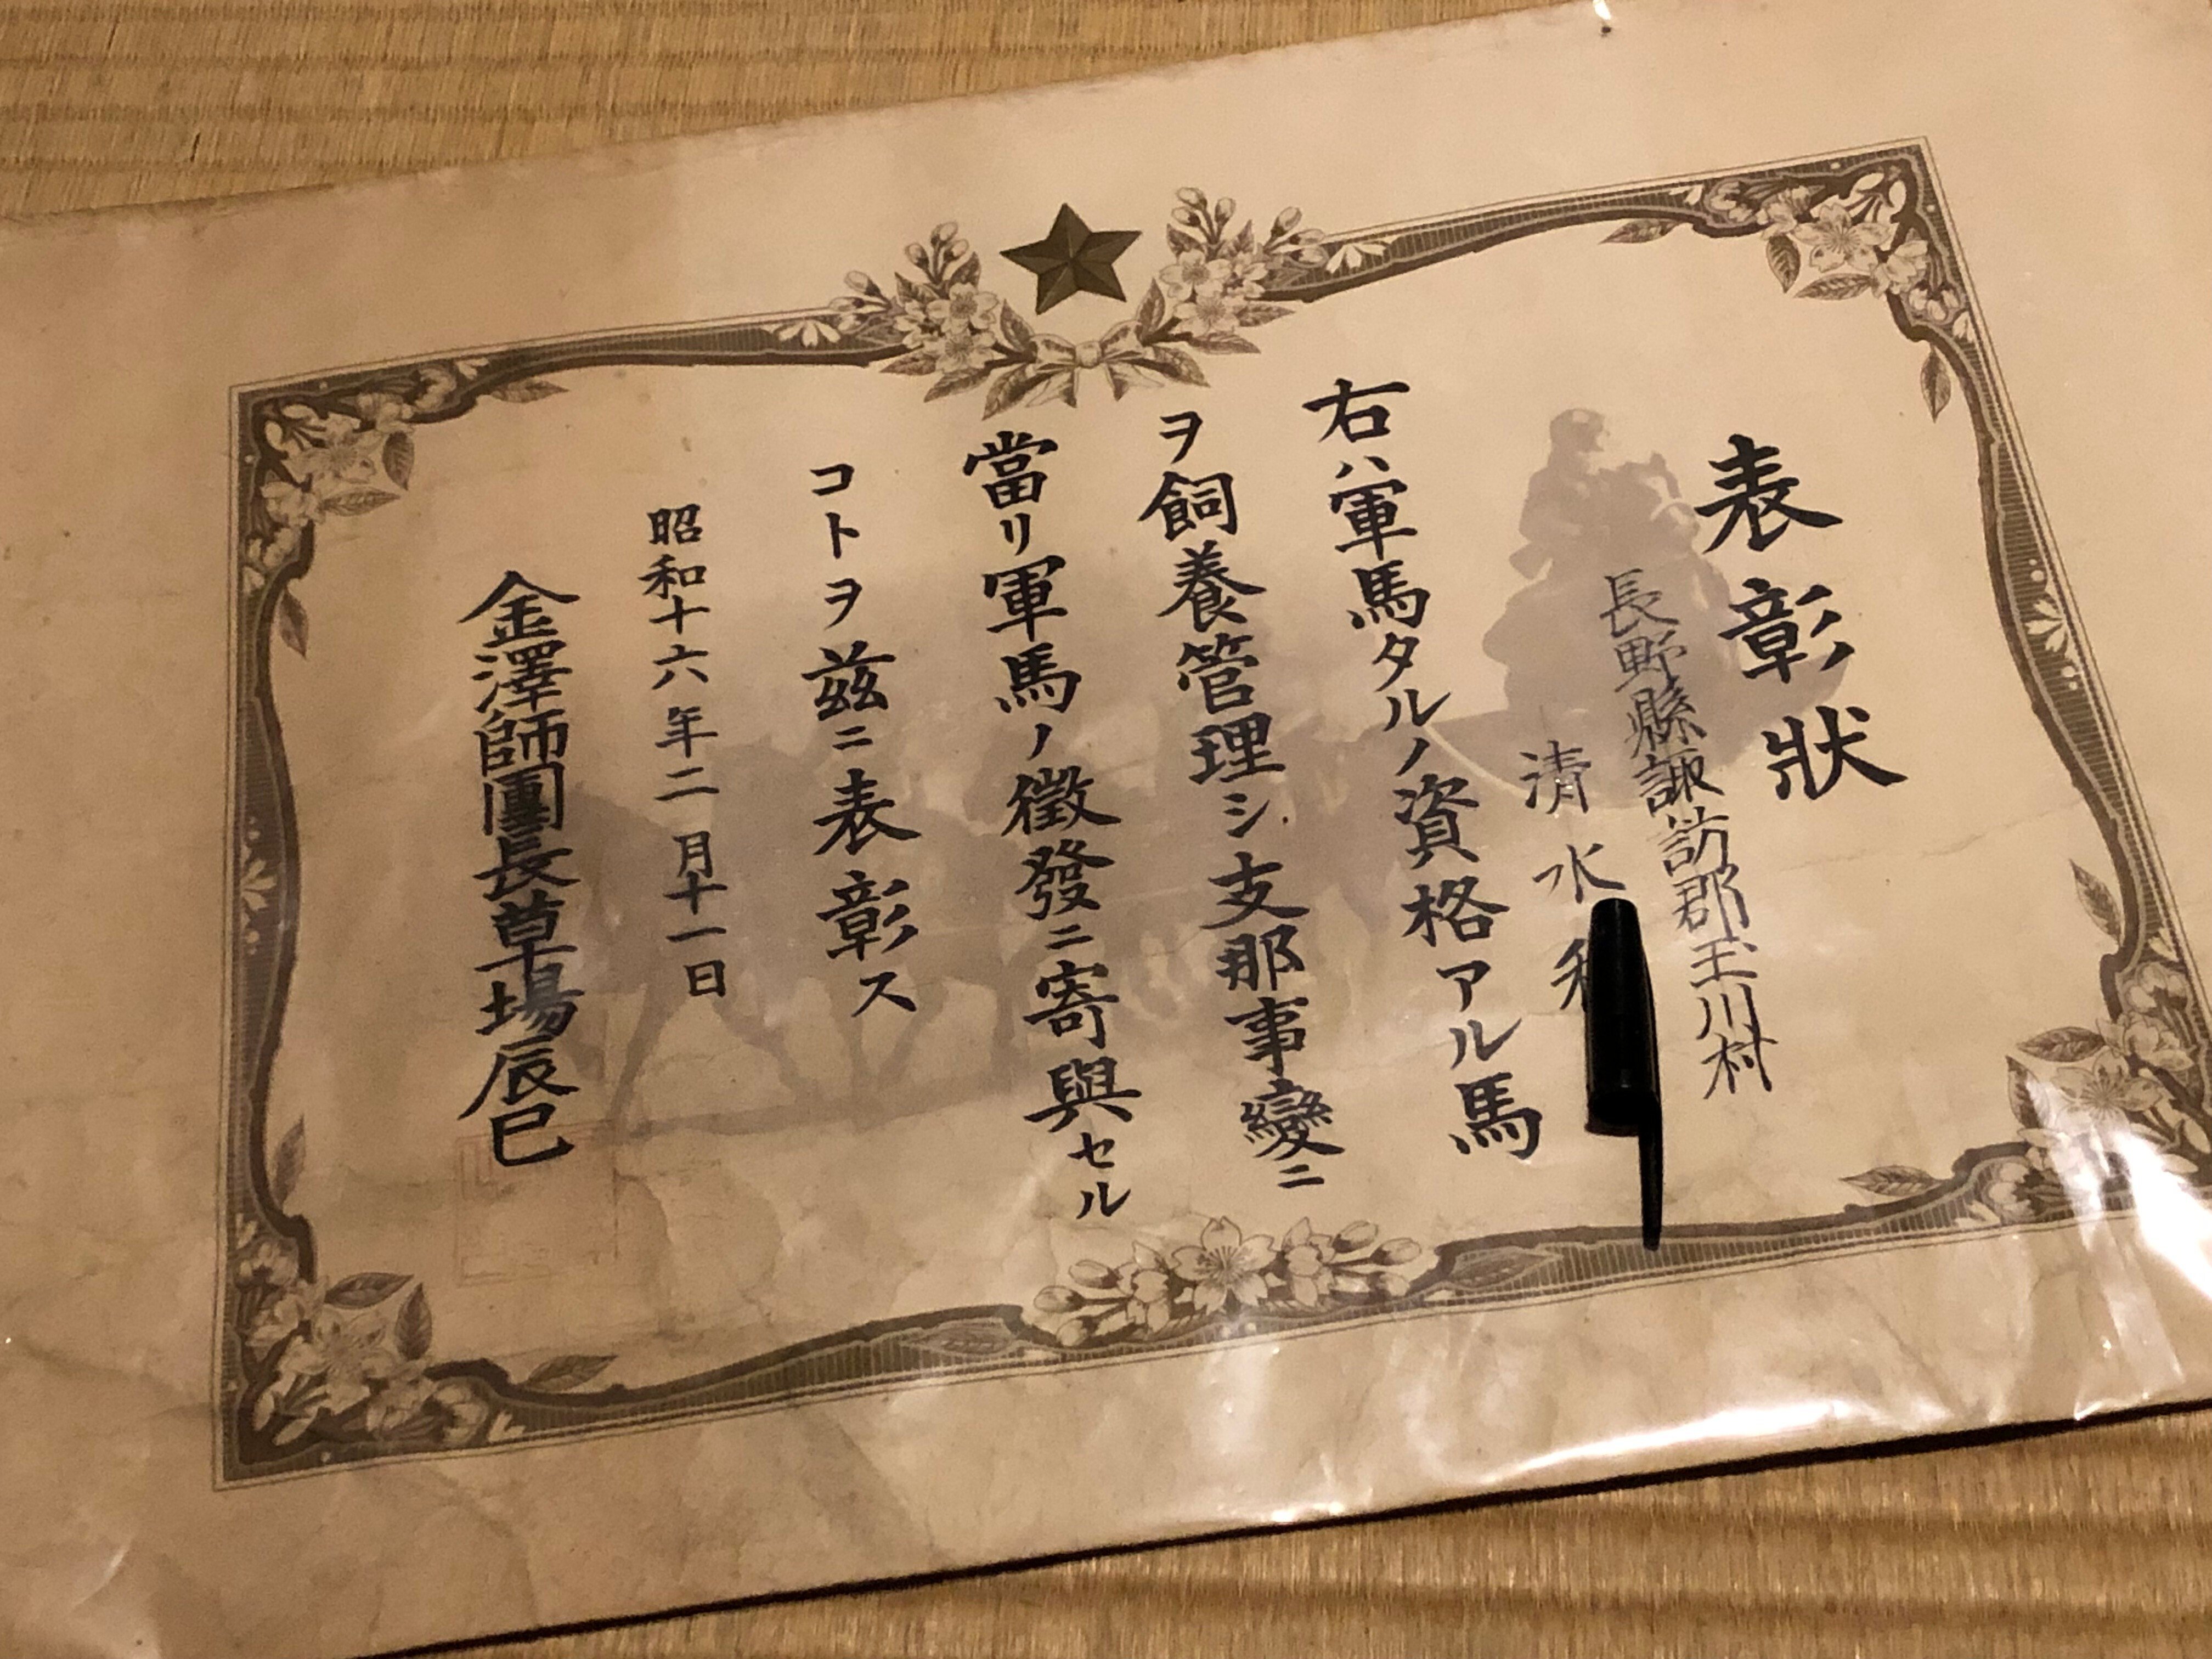 表彰狀
長野縣諏訪郡玉川村
清水
右ハ軍馬タルノ資格アル馬
ヲ飼養管理シ支那事變ニ
當リ軍馬ノ徵發ニ寄與セル
コトヲ茲ニ表彰ス
昭和十六年二月十一日
金澤師團長草場辰巳